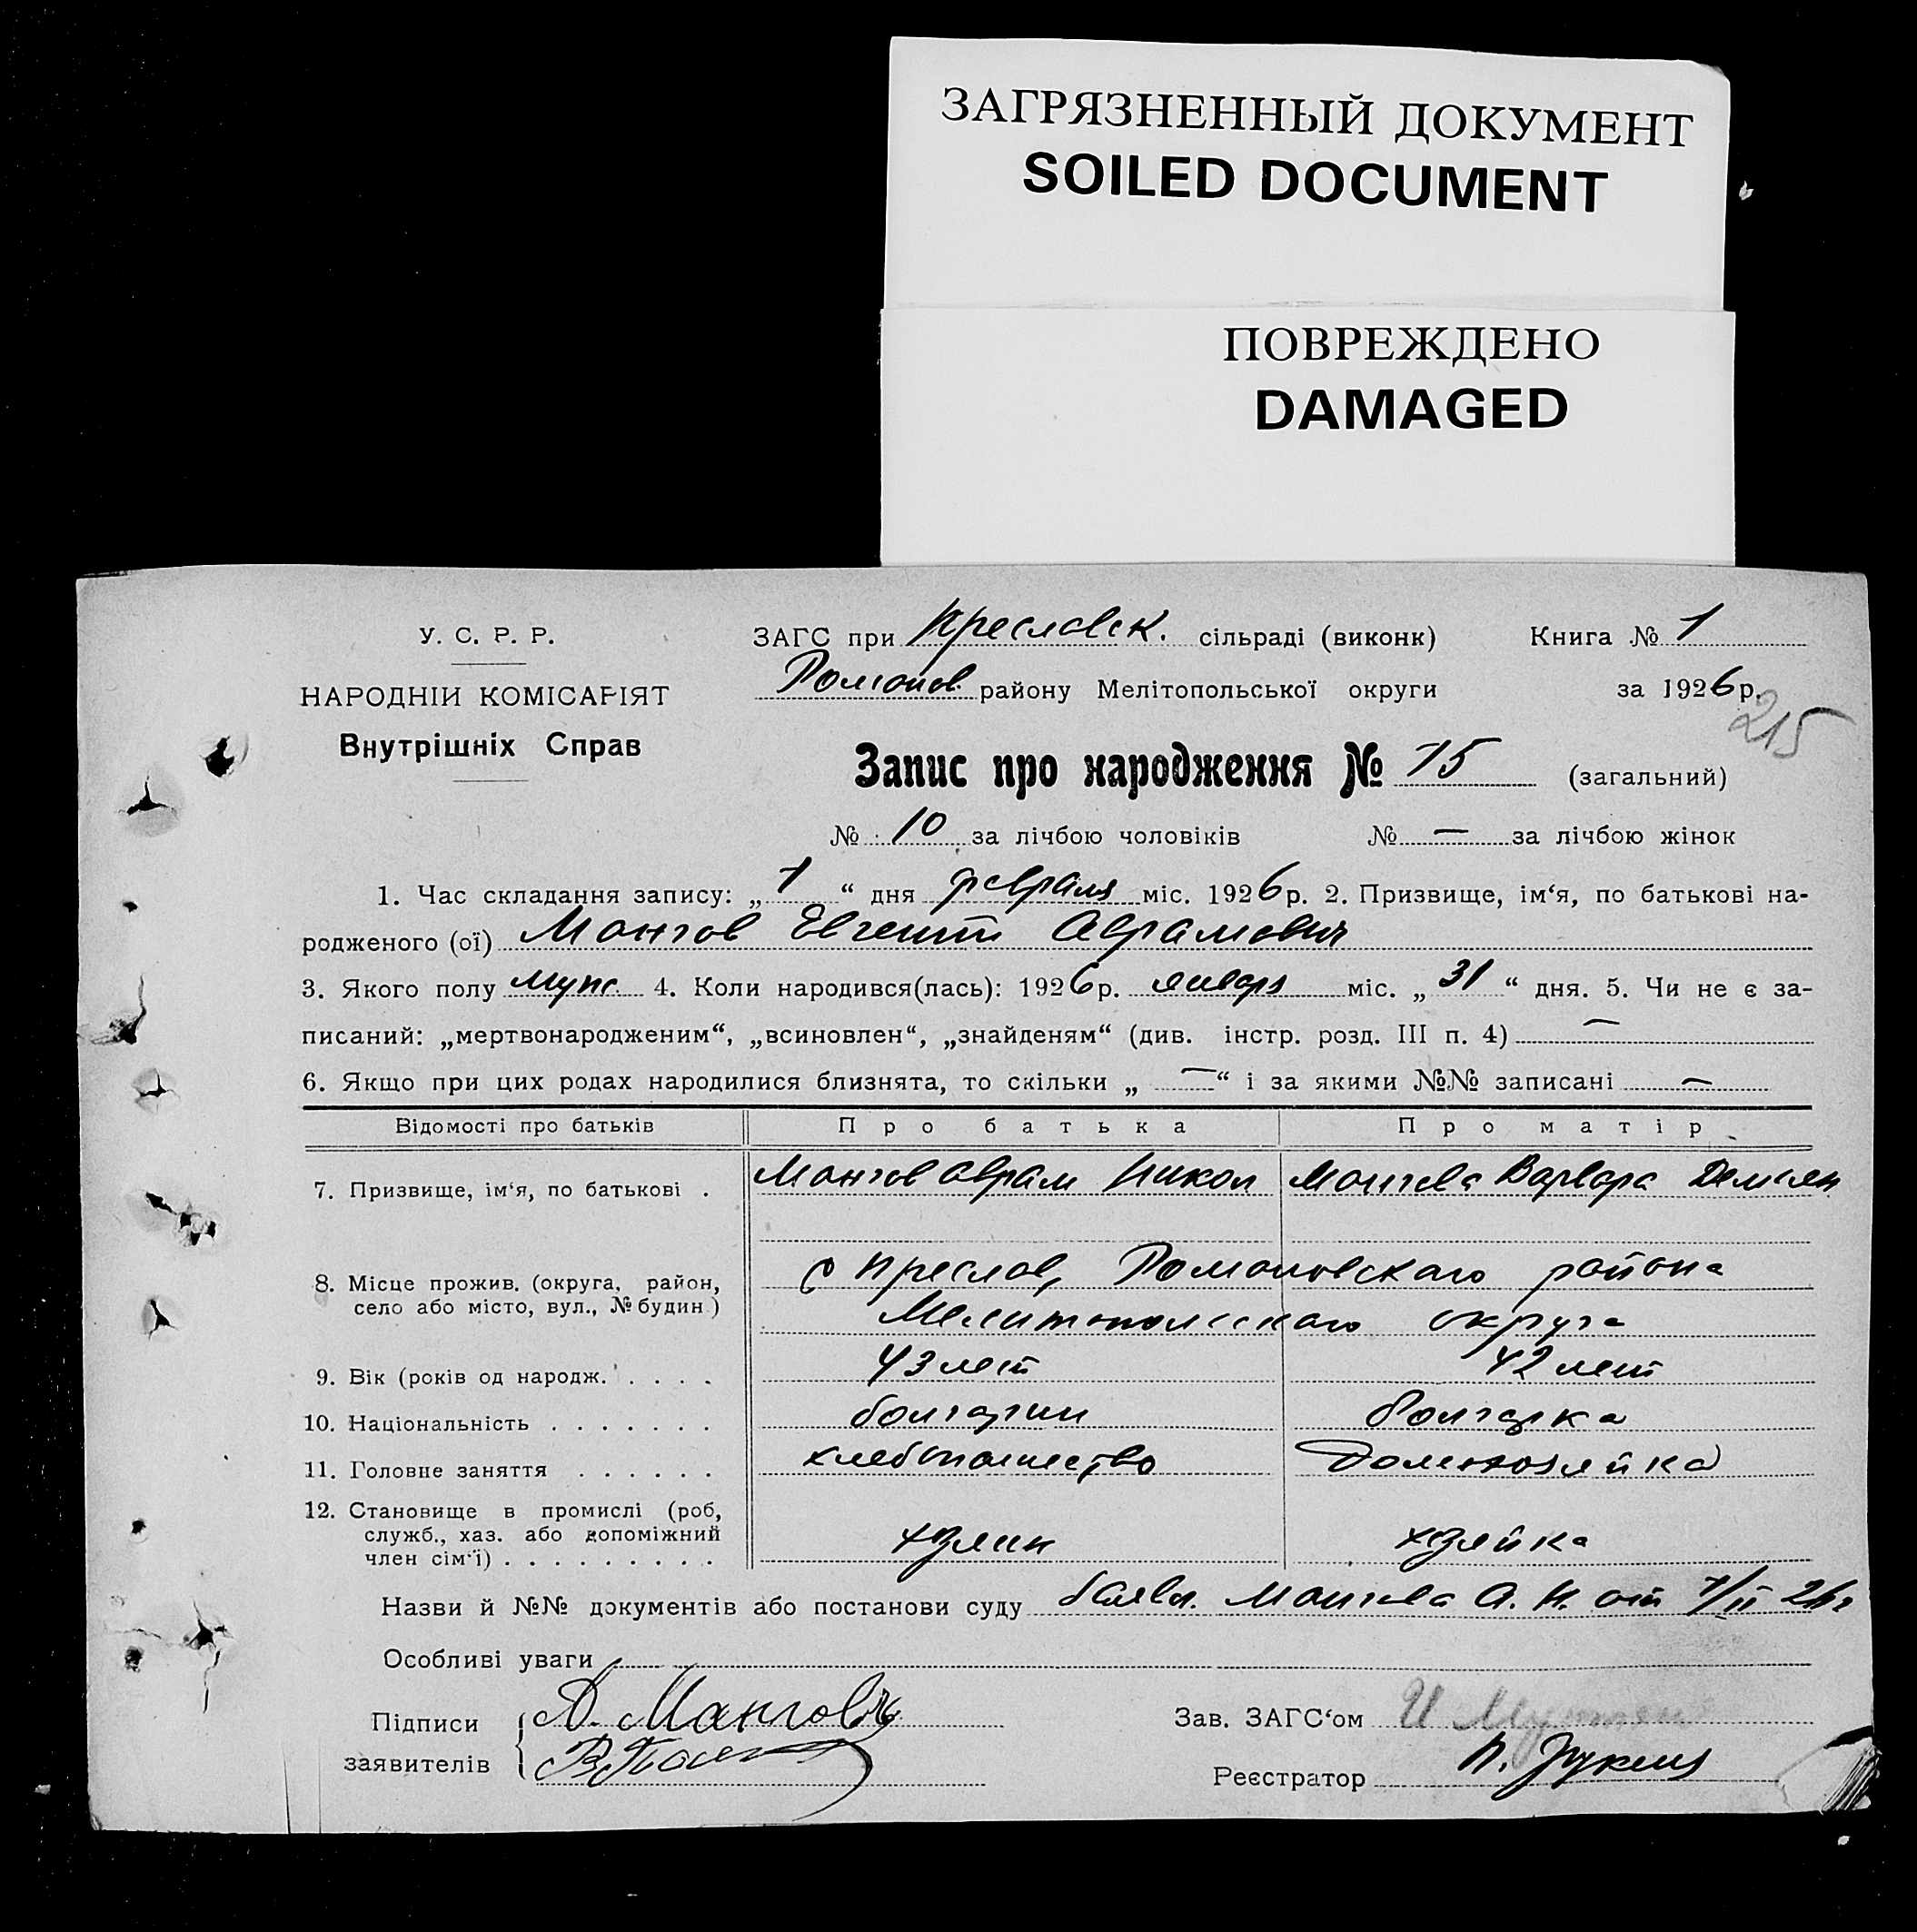 ЗАГРЯЗНЕННЫЙ ДОКУМЕНТ
SOILED DOCUMENT
ПОВРЕЖДЕНО
DAMAGED
У. С. Р. Р.
НАРОДНІЙ КОМІСАРІЯТ
Внутрішніх Справ
ЗАГС при Преславск. сільраді (виконк) Книга № 1
Романов. району Мелітопольської округи за 1926 р.
215
Запис про народження № 15 (загальний)
№ 10 за лічбою чоловіків № — за лічбою жінок
1. Час складання запису: „ 1 “ дня февраля міс. 1926 р. 2. Призвище, ім‘я, по батькові на-
родженого (ої) Мангов Евгений Аврамович
3. Якого полу муж. 4. Коли народився(лась): 1926 р. января міс. „ 31 “ дня. 5. Чи не є за-
писаний: „мертвонародженим“, „всиновлен“, „знайденям“ (див. інстр. розд. III п. 4) —
6. Якщо при цих родах народилися близнята, то скільки „ — “ і за якими №№ записані —
Відомості про батьків Про батька Про матір
7. Призвище, ім‘я, по батькові . Мангов Аврам Никол Мангова Варвара Демьян
8. Місце прожив. (округа, район, с Преслав, Романовского района
село або місто, вул., № будин.) Мелитопольского округа
9. Вік (років од народж. . . . . 43 лет 42 лет
10. Національність . . . . . . . болгарин болгарка
11. Головне заняття . . . . . . хлебопашество домохозяйка
12. Становище в промислі (роб,
служб., хаз. або допоміжний
член сім‘ї) . . . . . . . . . хозяин хозяйка
Назви й №№ документів або постанови суду заявл. Мангова А. Н. от 1/II 26 г
Особливі уваги
Підписи А. Мангов
заявителів В.
Зав. ЗАГС‘ом И
Реєстратор П.